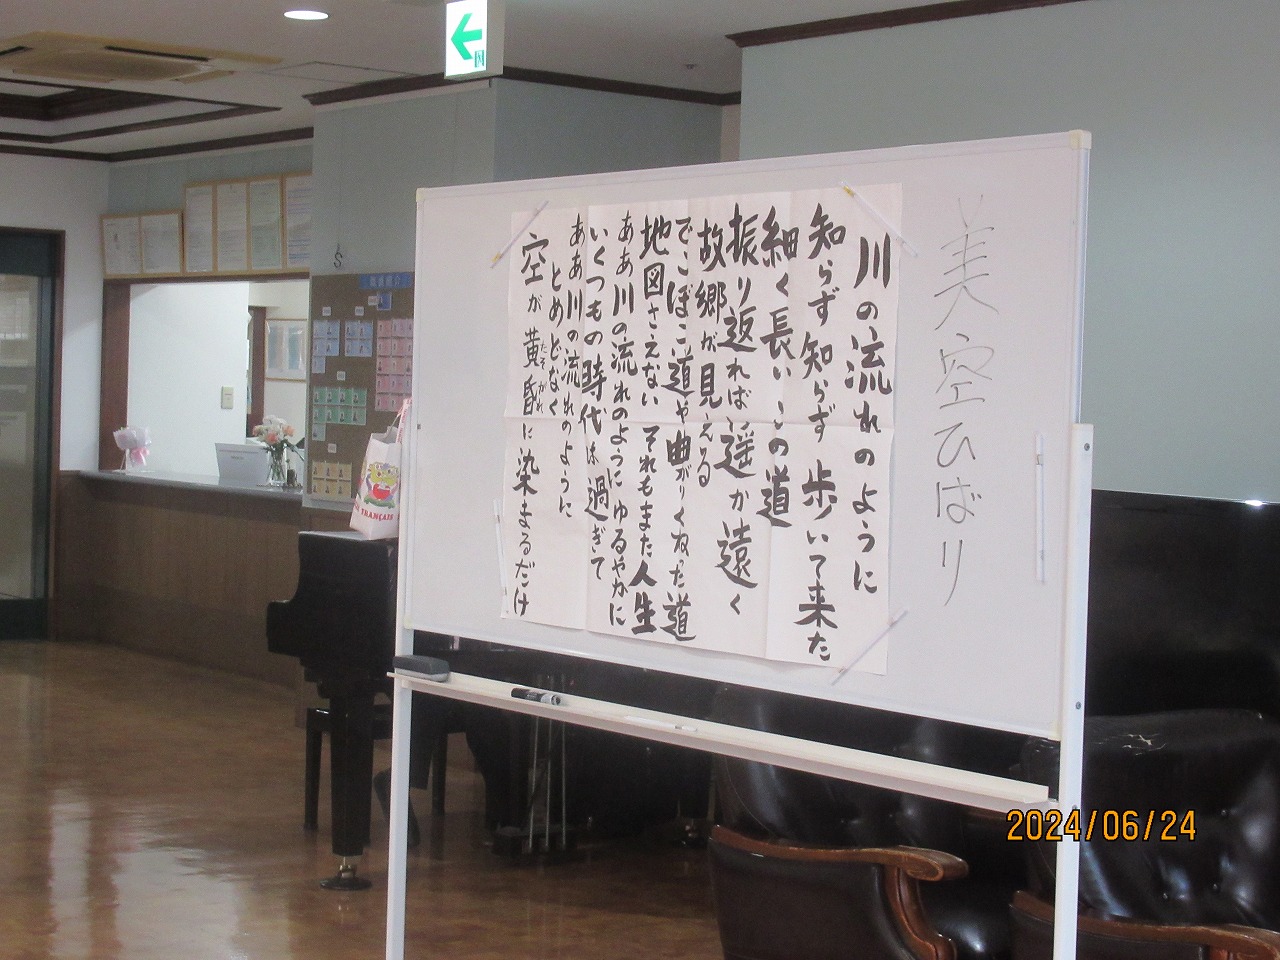 美空ひばり
川の流れのように
知らず知らず 歩いて来た
細く長い この道
振り返れば 遥か遠く
故郷が見える
でこぼこ道や 曲がりくねった道
地図さえない それもまた人生
ああ川の流れのように ゆるやかに
いくつもの時代は 過ぎて
ああ川の流れのように
とめどなく
空が 黄昏に 染まるだけ
たそがれ
FRANÇAIS
2024/06/24